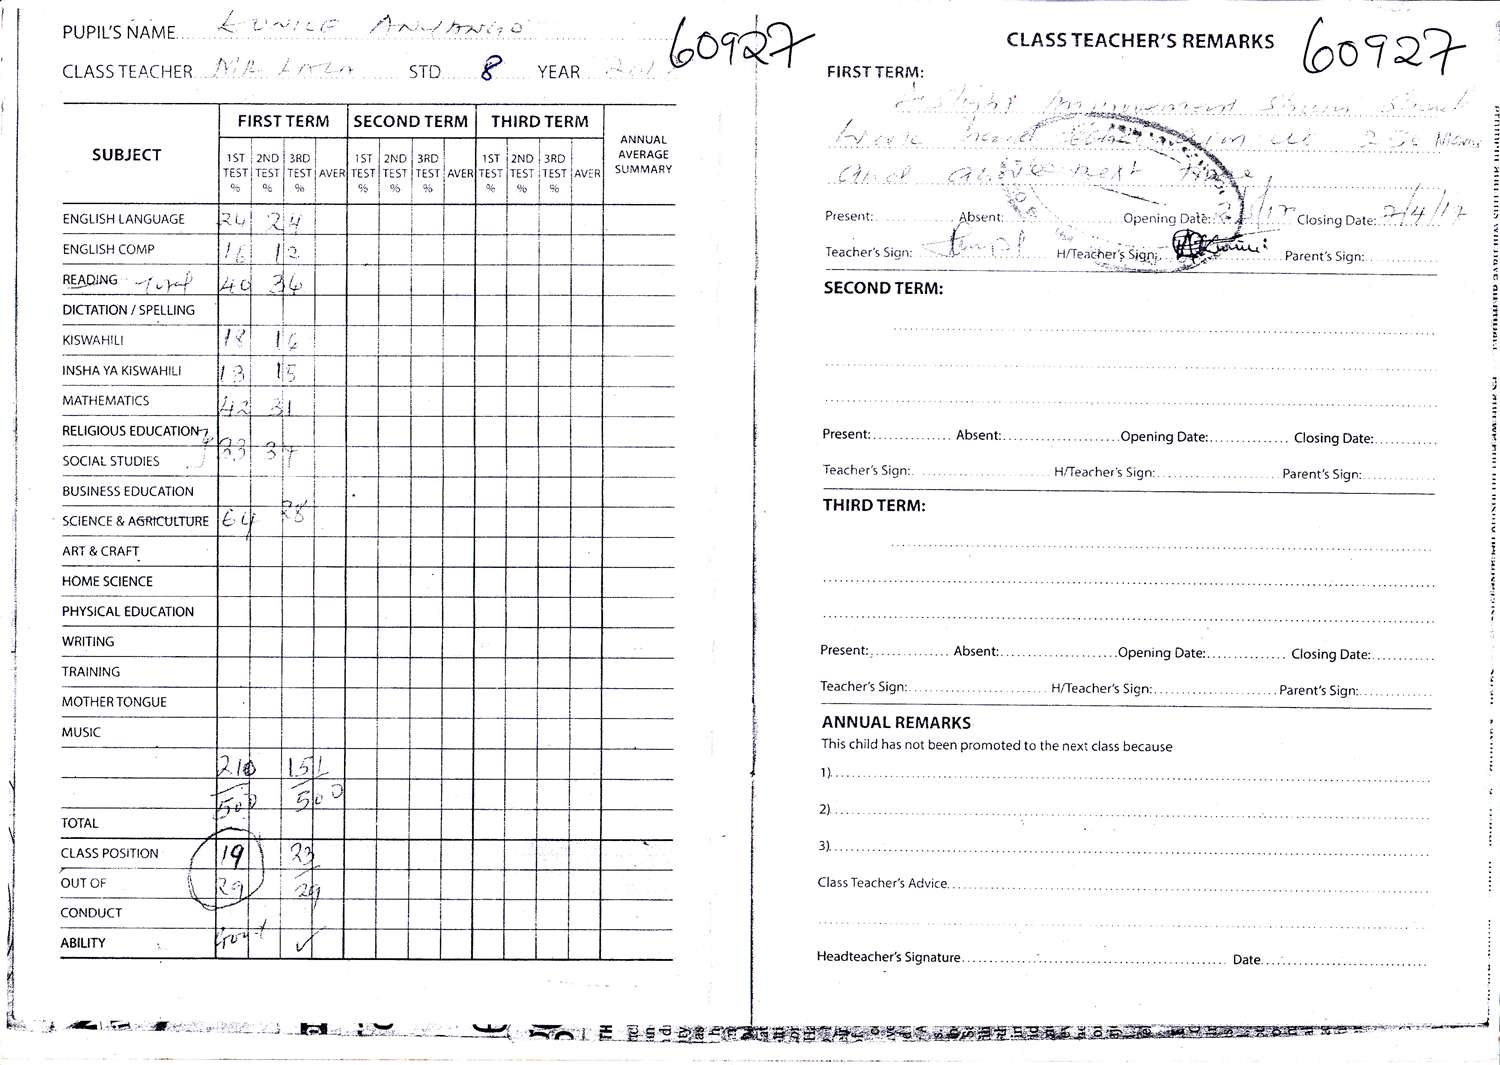 PUPIL'S NAME EUNICE ANYANGO
60927
CLASS TEACHER MR STD 8 YEAR
SUBJECT
FIRST TERM SECOND TERM THIRD TERM ANNUAL AVERAGE SUMMARY
1ST TEST % 2ND TEST % 3RD TEST % AVER 1ST TEST % 2ND TEST % 3RD TEST % AVER 1ST TEST % 2ND TEST % 3RD TEST % AVER
ENGLISH LANGUAGE 24 24
ENGLISH COMP 16 12
READING Total 40 36
DICTATION / SPELLING
KISWAHILI 18 16
INSHA YA KISWAHILI 13 15
MATHEMATICS 42 31
RELIGIOUS EDUCATION
SOCIAL STUDIES 33 37
BUSINESS EDUCATION
SCIENCE & AGRICULTURE 64 28
ART & CRAFT
HOME SCIENCE
PHYSICAL EDUCATION
WRITING
TRAINING
MOTHER TONGUE
MUSIC
210 151
500 500
TOTAL
CLASS POSITION 19 23
OUT OF 29 29
CONDUCT
ABILITY Good ✓
CLASS TEACHER'S REMARKS
60927
FIRST TERM:
A slight improvement shown
work hard 250 marks
and above next
Present: Absent: Opening Date: Closing Date: 7/4/17
Teacher's Sign: H/Teacher's Sign: Parent's Sign:
SECOND TERM:
Present: Absent: Opening Date: Closing Date:
Teacher's Sign: H/Teacher's Sign: Parent's Sign:
THIRD TERM:
Present: Absent: Opening Date: Closing Date:
Teacher's Sign: H/Teacher's Sign: Parent's Sign:
ANNUAL REMARKS
This child has not been promoted to the next class because
1)
2)
3)
Class Teacher's Advice
Headteacher's Signature Date